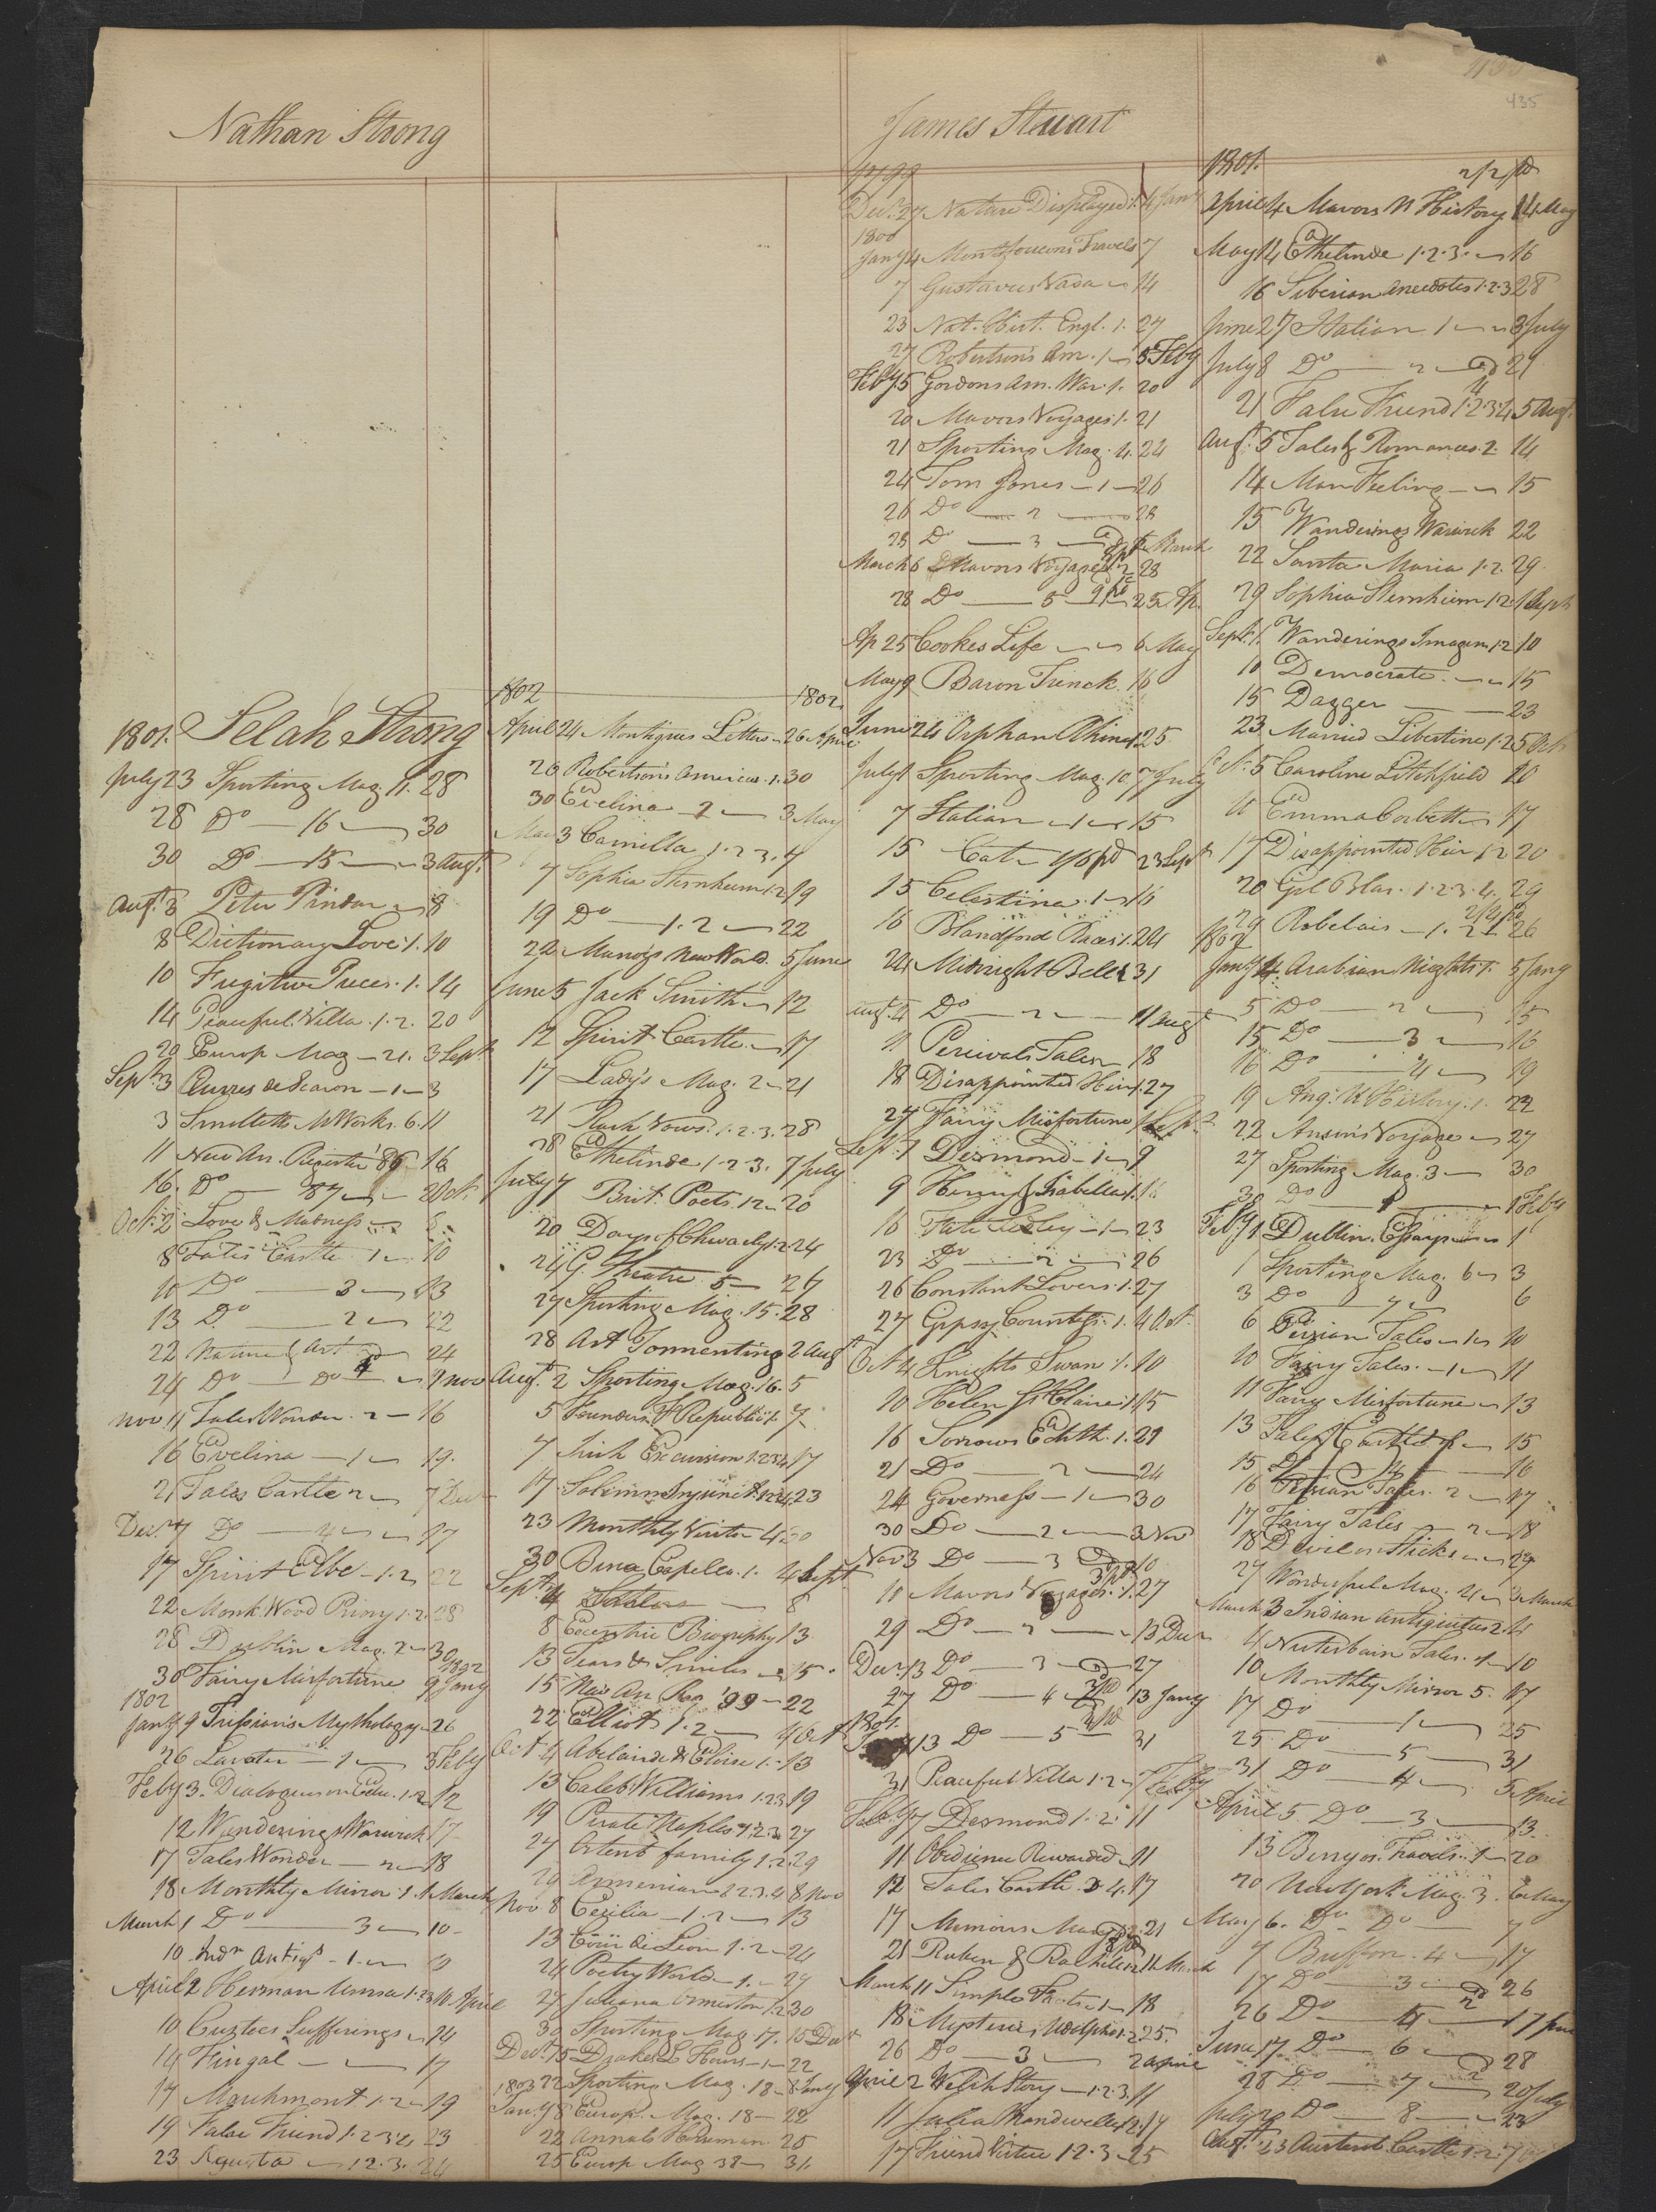 435
Nathan Strong
1801. Selah Strong
July 23 Sporting Mag. 11. 28
28 Do — 16 — 30
30 Do — 15 — 3 Augt.
Augt. 3 Peter Pindar — 8
8 Dictionary Love. 1. 10
10 Fugitive Pieces. 1. 14
14 Peaceful Villa. 1. 2. 20
20 Europ Mag — 21. 3 Sept
Sept. 3 Ouvres de Scaron — 1 — 3
3 Smollett M Works. 6. 11
11 New An. Register '86 — 16
16. Do — 87 — 2 Oct.
Oct. 2 Love & Madness — 8
8 Tales Castle 1 — 10
10 Do — 3 — 13
13 Do — 2 — 22
22 Nature & Art — 24
24 Do — Do — Nov
Nov 11 Tales Wonder. 2 — 16
16 Evelina — 1 — 19.
21 Tales Castle 2 — 7 Dec
Dec. 7 Do — 4 — 17
17 Spirit Elbe — 1. 2 22
22 Monk Wood Priory 1. 2. 28
28 Dublin Mag. 2 — 30
30 Fairy Misfortune 9 Jany 1802
1802
Jany 9 Tression's Mythology — 26
26 Lavater — 1 — 3 Feby
Feby 3. Dialogues on Edu. 1. 2 12
12 Wanderings Warwick 17
17 Tales Wonder — 2 — 18
18 Monthly Mirror. 1. 1 March
March 1 Do — 3 — 10 —
10 Indn Antiqs — 1 —
April 2 Herman Unna 1. 2. 3 10 April
10 Curtees Sufferings — 14
14 Fingal — 17
17 Marchmont 1. 2 — 19
19 False Friend 1. 2. 3. 4 23
23 Agusta — 1 2. 3. 24
1802 1802
April 24 Montagues Letters — 26 April
26 Robertson's America. 1. 30
30 Evelina — 2 — 3 May
May 3 Camilla 1. 2 3. 7
7 Sophia Sternheim 1. 2 19
19 Do — 1. 2 — 22
22 Munoz New World. 5 June
June 5 Jack Smith — 12
12 Spirit Castle — 17
17 Lady's Mag. 2 — 21
21 Rash Vows. 1. 2. 3. 28
28 Ethelinde 1. 2 3. 7 July
July 7 Brit. Poets. 12 — 20
20 Days of Chivalry 1. 2 24
24 G. Theatre. 5 — 27
27 Sporting Mag. 15. 28
28 Art Tormenting 2 Augt
Augt. 2 Sporting Mag. 16. 5
5 Founders F Republic 1. 7
7 Irish Excursion 1. 2 3 4 17
17 23
23 Monthly Visitor 4 30
30 Bina Capella. 1. 4 Sept
Sept 4 — 8
8 Eccentric Biography 13
13 Tears & Smiles — 15
15 New An Reg '99 — 22
22 Elliot 1. 2 — 4 Oct
Oct 4 Abelaird & Eloise 1. 13
13 Caleb Williams 1. 2 3. 19
19 Pirate Naples 1. 2. 3. 27
27 Ostent family 1. 2. 29
29 Armenian 1. 2. 3. 4 8 Nov
Nov 8 Cecilia — 1. 2 — 13
13 Coeur de Leon 1. 2 — 24
24 Poetry World — 1. — 27
27 Juliana Ormeston 1. 2 30
30 Sporting Mag 17. 15 Dec
Dec. 15 Drakes L Hours — 1 — 22
22 Sporting Mag. 18 — 8 Jany
1803
Jany 8 Europ. Mag. 18 — 22
22 Annals Horseman. 25
25 Europ Mag 38 — 31
James Steuart
1799
Dec. 27 Nature Displayed 1. 4 Jany
1800
Jany 4 Montfoucons Travels 7
7 Gustavus Vasa — 14
23 Nat. Hist. Engl. 1. 27
27 Robertson's Am. 1 — 5 Feby
Feby 5 Gordons Am. War. 1. 20
20 Mavors Voyages 1. 21
21 Sporting Mag. 4. 24
24 Tom Jones — 1 — 26
26 Do — 2 — 28
28 Do — 3 — March
March 6 Mavors Voyages. 2 28
28 Do — 5 — 25 Ap.
Ap 25 Cookes Life — 6 May
May 9 Baron Trenck. 16
June 24 Orphan Rhine 1. 25
July 1 Sporting Mag. 10. 7 July
7 Italian — 1 — 15
15 Cat. /6 pd 23 Sept
15 Celestina. 1 — 16
16 Blandford Races. 1. 24
24 Midnight Bell 1 31
Augt. 4 Do — 2 — 11 Augt
11 Percivals Tales — 18
18 Disappointed Heir 1. 27
27 Fairy Misfortune 1 Sept.
Sept. 7 Desmond — 1 — 9
9 Henry & Isabella 1. 16
16 Fate Sedley — 1 — 23
23 Do — 2 — 26
26 Constant Lovers. 1. 27
27 Gypsey Countess. 1. 4 Oct.
Oct 4 Knights Swan 1. 10
10 Helen St Claire 1. 15
16 Sorrows Edith. 1. 21
21 Do — 2 — 24
24 Governess — 1 — 30
30 Do — 2 — 3 Nov
Nov 3 Do — 3 10
11 Mavors Voyages. 1. 27
29 Do — 2 — 13 Decr
Decr. 13 Do — 3 — 27
27 Do — 4 13 Jany
1801.
13 Do — 5 — 31
31 Peaceful Villa 1. 2 — 7 Feby
Feby 7 Desmond 1. 2. 11
11 Obedience Rewarded — 11
12 Tales Castle. 3 4. 17
17 Memoirs 21
21 Ruben & Rachel 1. 2 11 March
March 11 Simple Facts 1 — 18
18 Mysteries Udolpho 1. 2. 25.
26 Do — 3 — 2 April
April 2 Welch Story — 1. 2. 3. 11
11 Julia Mandeville 1. 2. 17
17 Friend Virtue 1. 2. 3 — 25
1801. 2/2 pd
April 4 Mavors N History 14 May
May 14 Ethelinde 1. 2. 3. — 16
16 Siberian Anecdotes 1. 2. 3 28
June 27 Italian 1 — 8 July
July 8 Do — 2 — 21
21 False Friend 1. 2. 3. 4 5 Augt.
Augt. 5 Tales & Romances. 2. 14
14 Man Feeling — 15
15 Wanderings Warwick 22
22 Santa Maria 1. 2. 29
29 Sophia Sternheim 1. 2. 1 Sept
Sept. 1. Wanderings Imagin. 1. 2 10
10 Democrate. — 15
15 Dagger — 23
23 Married Libertine 1. 2 5 Oct
Oct. 5 Caroline Litchfield 10
11 Emma Corbett — 17
17 Disappointed Heir 1. 2 20
20 Gil Blas. 1. 2. 3. 4. 29
29 Rabelais — 1. 2 — 26
1802
Jany 4. Arabian Nights 1. 5 Jany
5 Do — 2 — 15
15 Do — 3 — 16
16 Do — 4 — 19
19 Ang: U History. 1. 22
22 Anson's Voyage — 27
27 Sporting Mag. 3 — 30
30 Do — 1 Feby
Feby 1 Dublin Essays — 1
1 Sporting Mag. 6 — 3
3 Do — 7 — 6
6 Persian Tales — 1 — 10
10 Fairy Tales. — 1 — 11
11 Fairy Misfortune — 13
13 Tales Castle — 15
15 — 16
16 Persian Tales. 2 — 17
17 Fairy Tales — 2 — 18
18 Devil on Sticks — 27
27 Wonderful Mag. 4 — 3 March
March 3 Indian Antiquities 2. 4
4 Nuterbain Tales. 1 — 10
10 Monthly Mirror 5. 17
17 Do — 1 — 25
25 Do — 5 — 31
31 Do — 4 — 5 April
April 5 Do — 3 — 13
13 Benyos. Travels. 1 — 20
20 New York Mag. 3. 6 May
May 6. Do — Do — 7
7 Buffon. 4 — 17
17 Do — 3 — 26
26 Do — 17 June
June 17 Do — 6 — 28
28 Do — 7 — 20 July
July 20 Do — 8 — 23
Augt. 23 Austenb. Castle 1. 2. 7